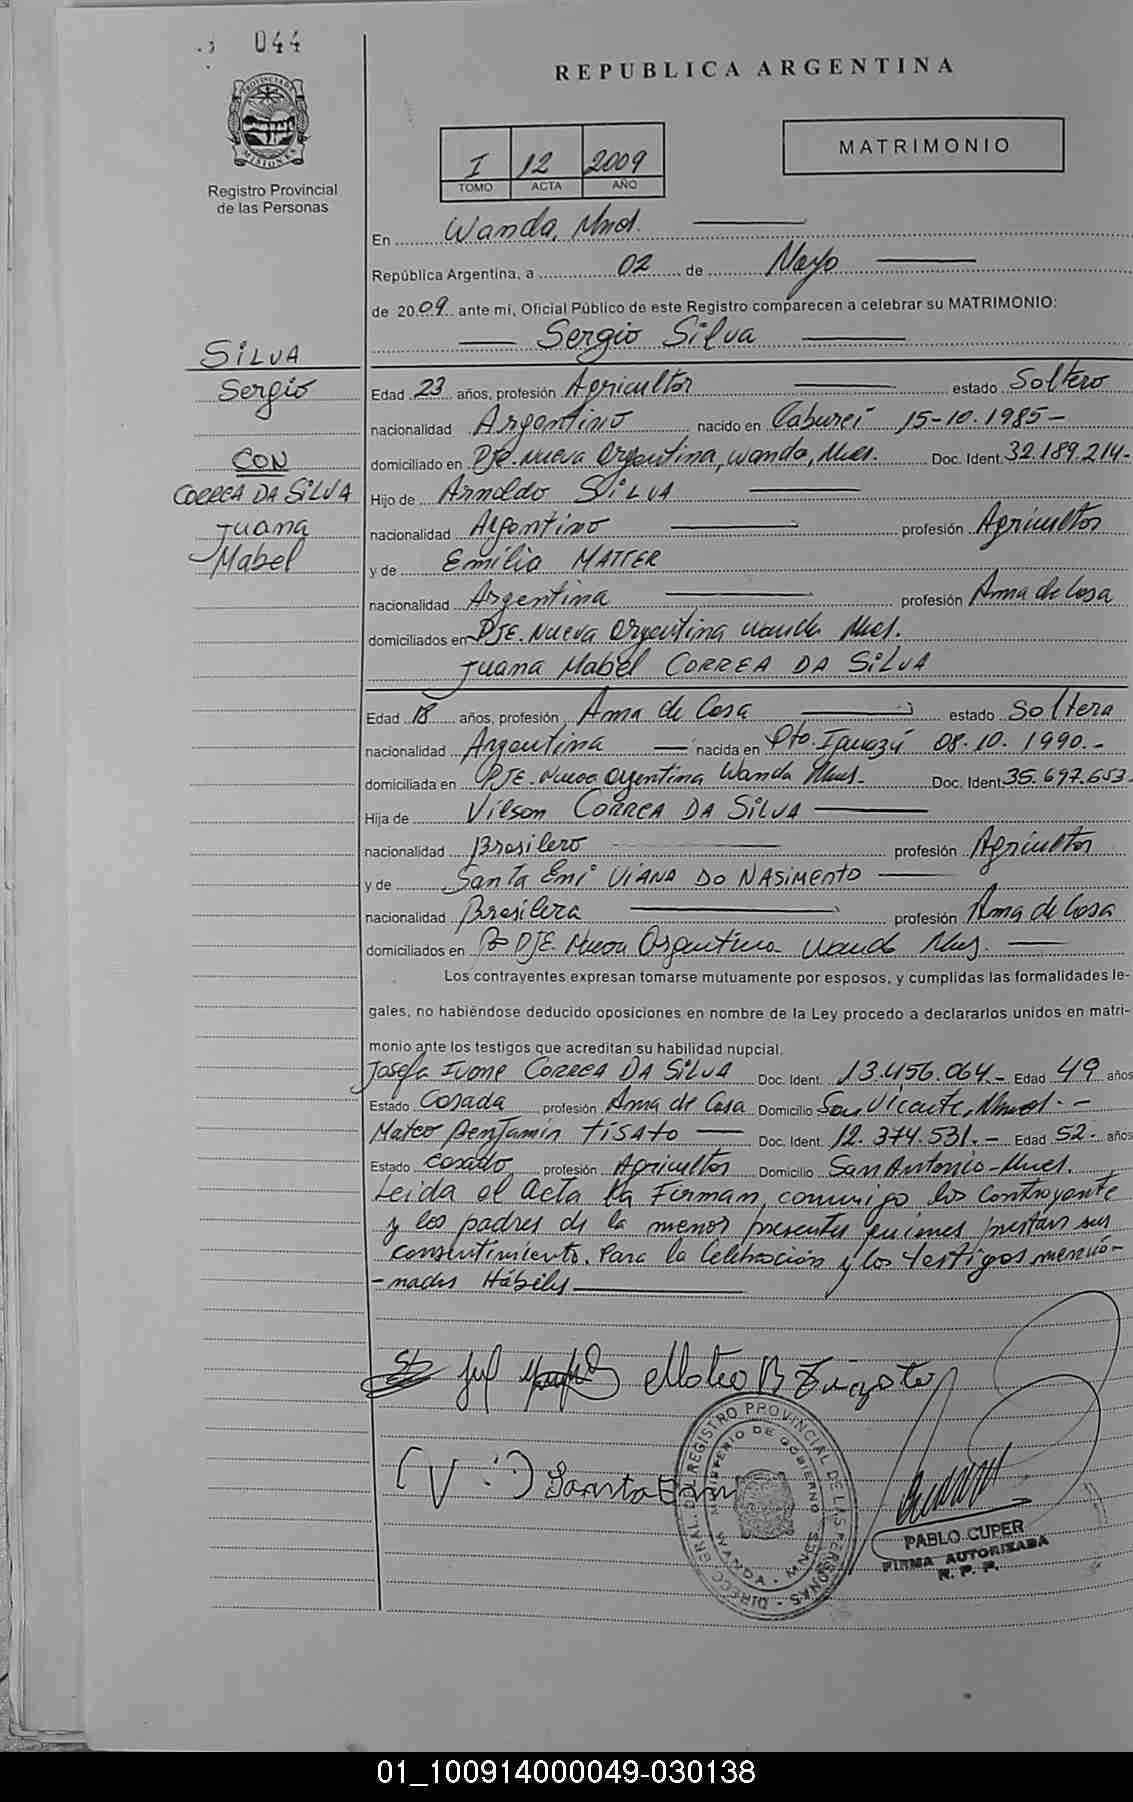 044
PROVINCIA DE MISIONES
Registro Provincial
de las Personas
REPUBLICA ARGENTINA
I 12 2009
TOMO ACTA AÑO
MATRIMONIO
En Wanda, Mnes.
República Argentina, a 02 de Mayo
de 2009 ante mi, Oficial Público de este Registro comparecen a celebrar su MATRIMONIO:
Sergio Silva
SILVA
Sergio
CON
CORREA DA SILVA
Juana
Mabel
Edad 23 años, profesión Agricultor estado Soltero
nacionalidad Argentino nacido en Caburei 15-10.1985-
domiciliado en Pje. Nueva Argentina, Wanda, Mnes. Doc. Ident. 32.189.214-
Hijo de Arnoldo SILVA
nacionalidad Argentino profesión Agricultor
y de Emilia MATTER
nacionalidad Argentina profesión Ama de Casa
domiciliados en PJE. Nueva Argentina Wanda Mnes.
Juana Mabel CORREA DA SILVA
Edad 18 años, profesión Ama de Casa estado Soltera
nacionalidad Argentina nacida en Pto. Iguazú 08.10.1990.-
domiciliada en PJE. Nueva Argentina Wanda Mnes.- Doc. Ident. 35.697.653.
Hija de Vilson CORREA DA SILVA
nacionalidad Brasilero profesión Agricultor
y de Santa Eni VIANA DO NASIMENTO
nacionalidad Brasilera profesión Ama de Casa
domiciliados en PJE. Nueva Argentina Wanda Mnes.
Los contrayentes expresan tomarse mutuamente por esposos, y cumplidas las formalidades le-
gales, no habiéndose deducido oposiciones en nombre de la Ley procedo a declararlos unidos en matri-
monio ante los testigos que acreditan su habilidad nupcial.
Josefa Ivone CORREA DA SILVA Doc. Ident. 13.456.064.- Edad 49 años
Estado Casada profesión Ama de Casa Domicilio San Vicente, Mnes.-
Mateo Benjamin TISATO Doc. Ident. 12.374.531.- Edad 52.- años
Estado Casado profesión Agricultor Domicilio San Antonio-Mnes.
Leida el Acta la Firman, conmigo los Contrayente
y los padres de la menor presentes quienes prestan su
consentimiento. Para la Celebración y los testigos mencio-
-nados Hábiles
Mateo B
(V :) Santa Eni
DIRECC. GRAL. DEL REGISTRO PROVINCIAL DE LAS PERSONAS
MINISTERIO DE GOBIERNO
WANDA - MNES
PABLO CUPER
FIRMA AUTORIZADA
R. P. P.
01_100914000049-030138